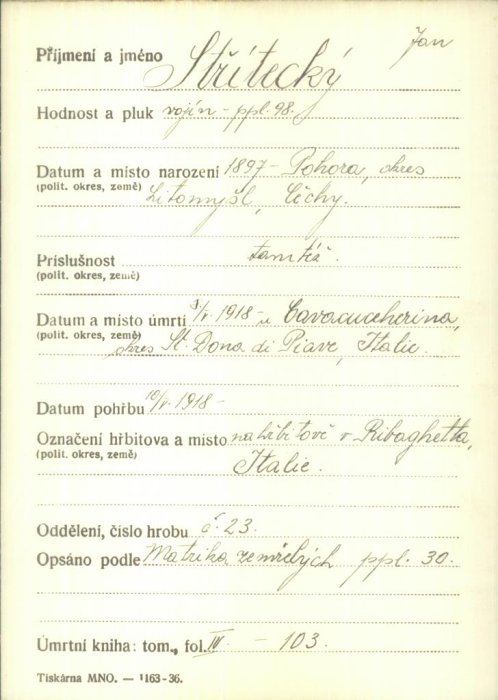 Jan
Příjmení a jméno Střítecký
Hodnost a pluk vojín - ppl. 98.
Datum a místo narození 1897 - Pohora, okres
(polit. okres, země) Litomyšl, Čechy.
Príslušnost tamtéž.
(polit. okres, země)
Datum a místo úmrtí 9/V. 1918 - u Cavacucherina,
(polit. okres, země) okres St. Dona di Piave, Italie.
Datum pohřbu 10/V. 1918 -
Označení hřbitova a místo na hřbitově v Ribaghetta,
(polit. okres, země) Italie.
Oddělení, číslo hrobu č. 23.
Opsáno podle Matrika zemřelých ppl. 30.
Úmrtní kniha: tom., fol. IV - 103.
Tiskárna MNO. — 1163-36.